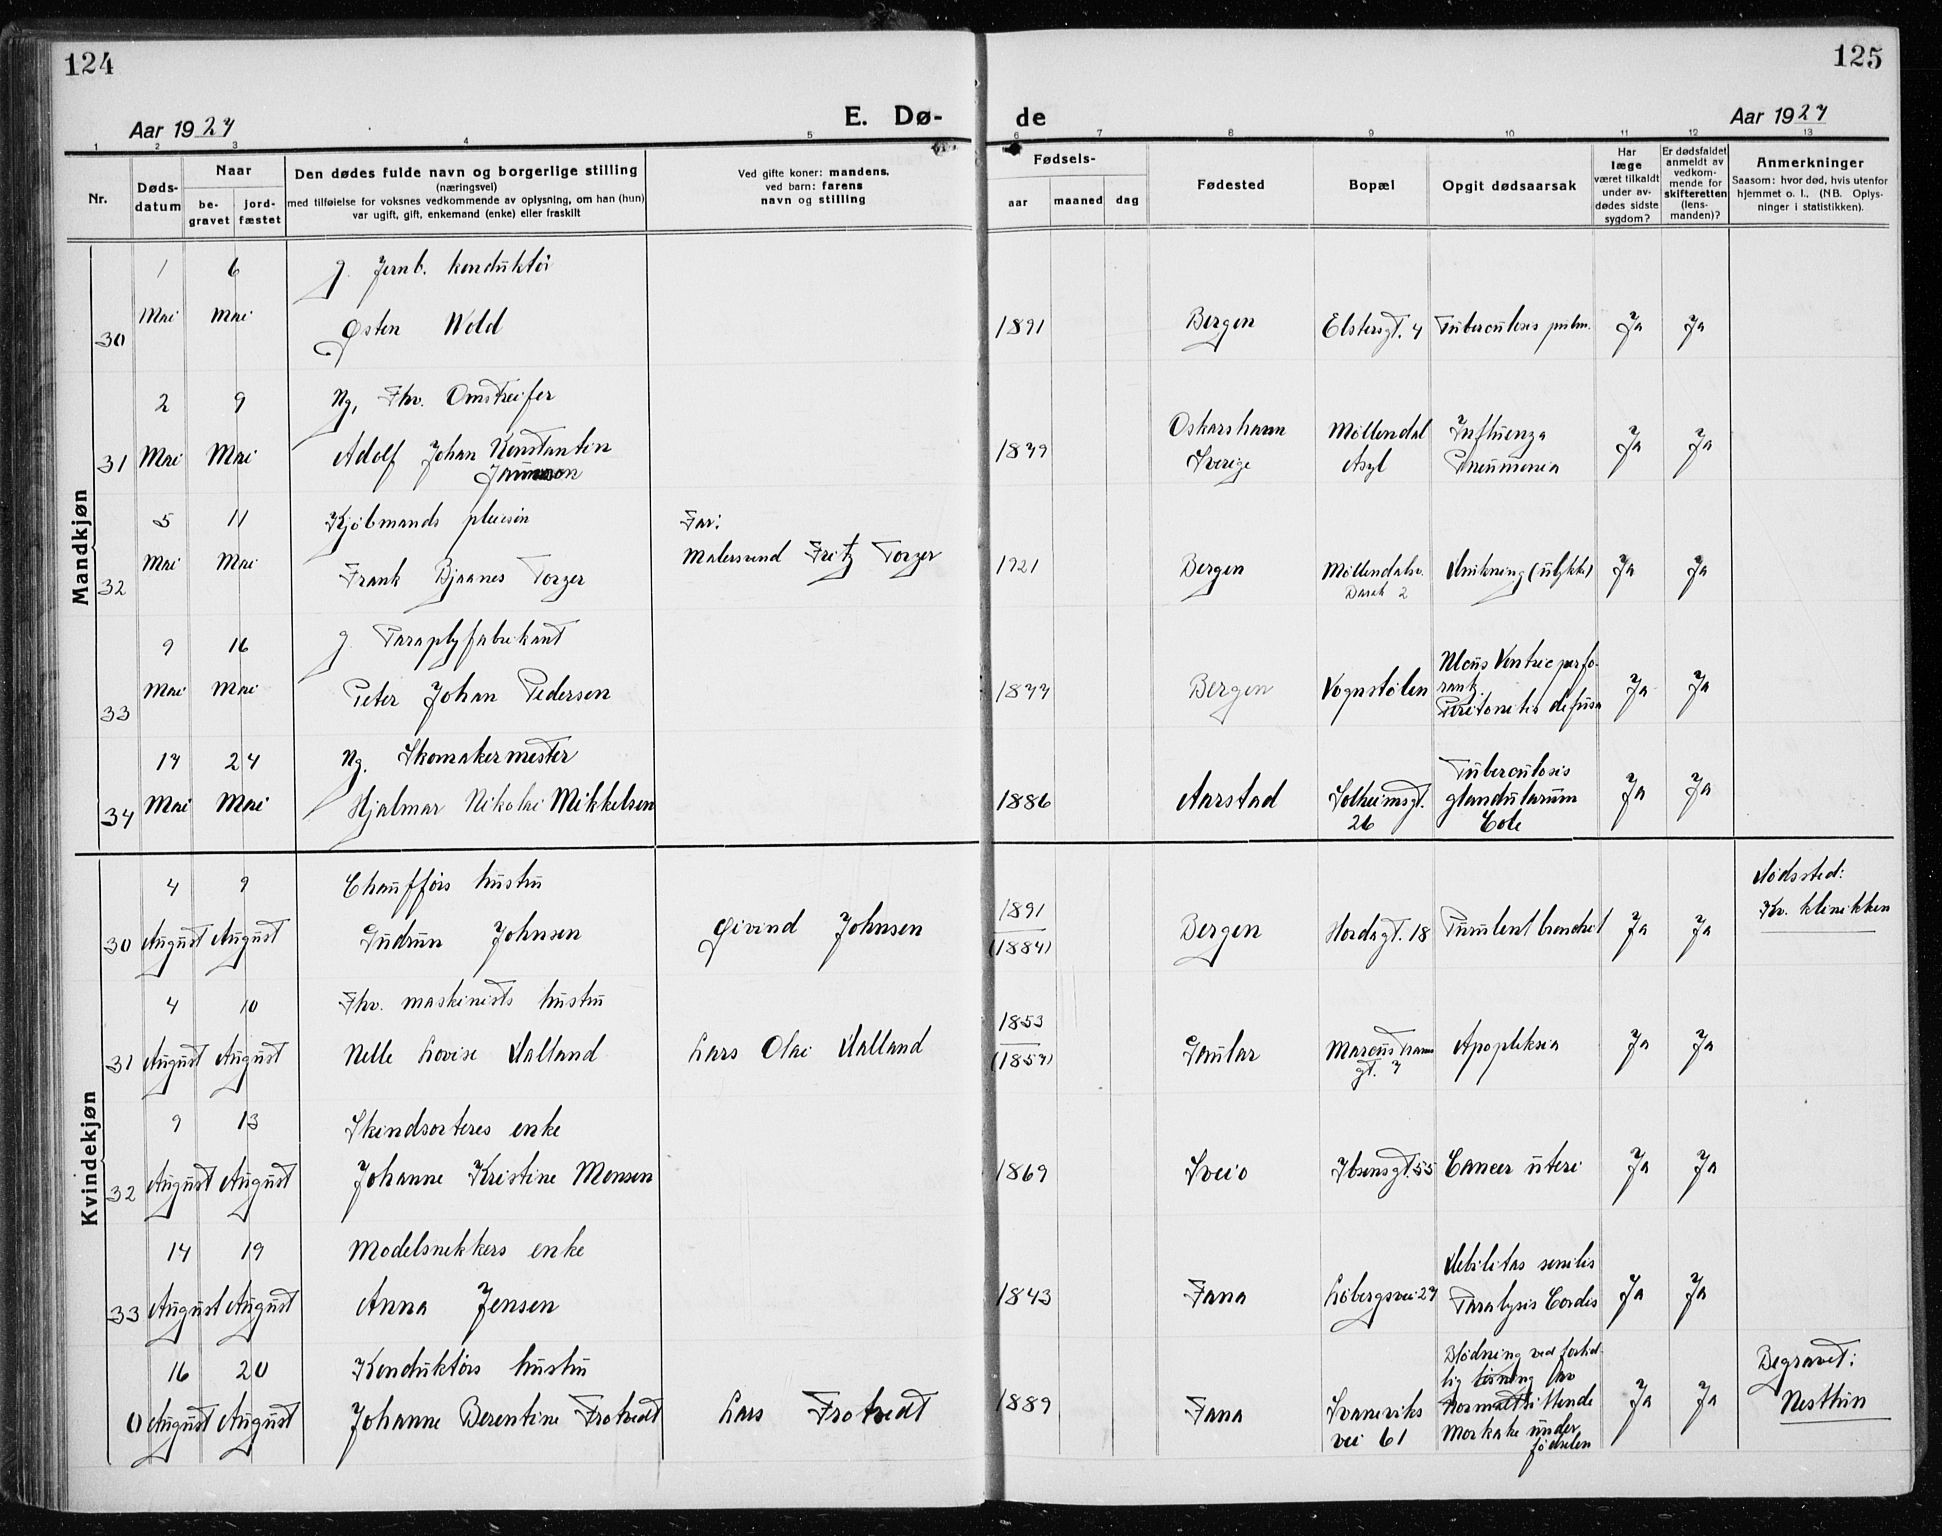 124
125
E. Dø-
de
Aar 1927
Aar 1927
1 2 3 4 5 6 7 8 9 10 11 12 13
Nr.
Døds-
datum
Naar
be-
gravet
jord-
fæstet
Den dødes fulde navn og borgerlige stilling
(næringsvei)
med tilføielse for voksnes vedkommende av oplysning, om han (hun)
var ugift, gift, enkemand (enke) eller fraskilt
Ved gifte koner: mandens,
ved barn: farens
navn og stilling
Fødsels-
aar
maaned
dag
Fødested
Bopæl
Opgit dødsaarsak
Har
læge
været tilkaldt
under av-
dødes sidste
sygdom?
Er dødsfaldet
anmeldt av
vedkom-
mende for
skifteretten
(lens-
manden)?
Anmerkninger
Saasom: hvor død, hvis utenfor
hjemmet o. l.. (NB. Oplys-
ninger i statistikken).
Mandkjøn
1 6 g. Jernb. konduktør
30 Mai Mai Østen Wold 1891 Bergen Elstersgt. 7 Tuberculosis pulm. Ja Ja
2 9 Ug, Fhv. Omstreifer
31 Mai Mai Adolf Johan Konstantin 1879 Oskarshavn Sverige Møllendal Asyl Influenza Pneumonia Ja Ja
5 11 Kjøbmands pleiesøn Far:
32 Mai Mai Frank Bjaanes Torger Malersvend Fritz Torger 1921 Bergen Møllendalsv. Barak 2 Drukning (ulykke) Ja Ja
9 16 g. Paraplyfabrikant
33 Mai Mai Peter Johan Pedersen 1877 Bergen Vognstølen Ulcus Ventric perfo-
rantz.
Peritonitis difusa Ja Ja
17 24 Ug. Skomakermester
34 Mai Mai Hjalmar Nikolai Mikkelsen 1886 Aarstad Solheimsgt. 26 Tuberculosis
glandularum
Cole Ja Ja
Kvindekjøn
4 9 Chaufførs hustru
30 August August Gudrun Johnsen Øivind Johnsen 1891 (1884) Bergen Hordagt. 18 Purulent bronchit Ja Ja Dødssted:
Kv. klinikken
4 10 Fhv. maskinists hustru
31 August August Nelle Lovise Dalland Lars Olai Dalland 1853 (1857) Gaular Marcus Thranes gt. 7 Apopleksia Ja Ja
9 13 Skindsorteres enke
32 August August Johanne Kristine Monsen 1869 Sveio Ibsensgt. 55 Cancer uteri Ja Ja
14 19 Modelsnekkers enke
33 August August Anna Jensen 1843 Fana Løbergsvei 27 Debilitas senilis
Paralysis Cordis Ja Ja
16 20 Konduktørs hustru
0 August August Johanne Berentine Frotvedt Lars Frotvedt 1889 Fana Svaneviks vei 61 Blødning ved fortid-
lig løsning av
normaltsittende
morkake under
fødselen Ja Ja Begravet:
Nesttun